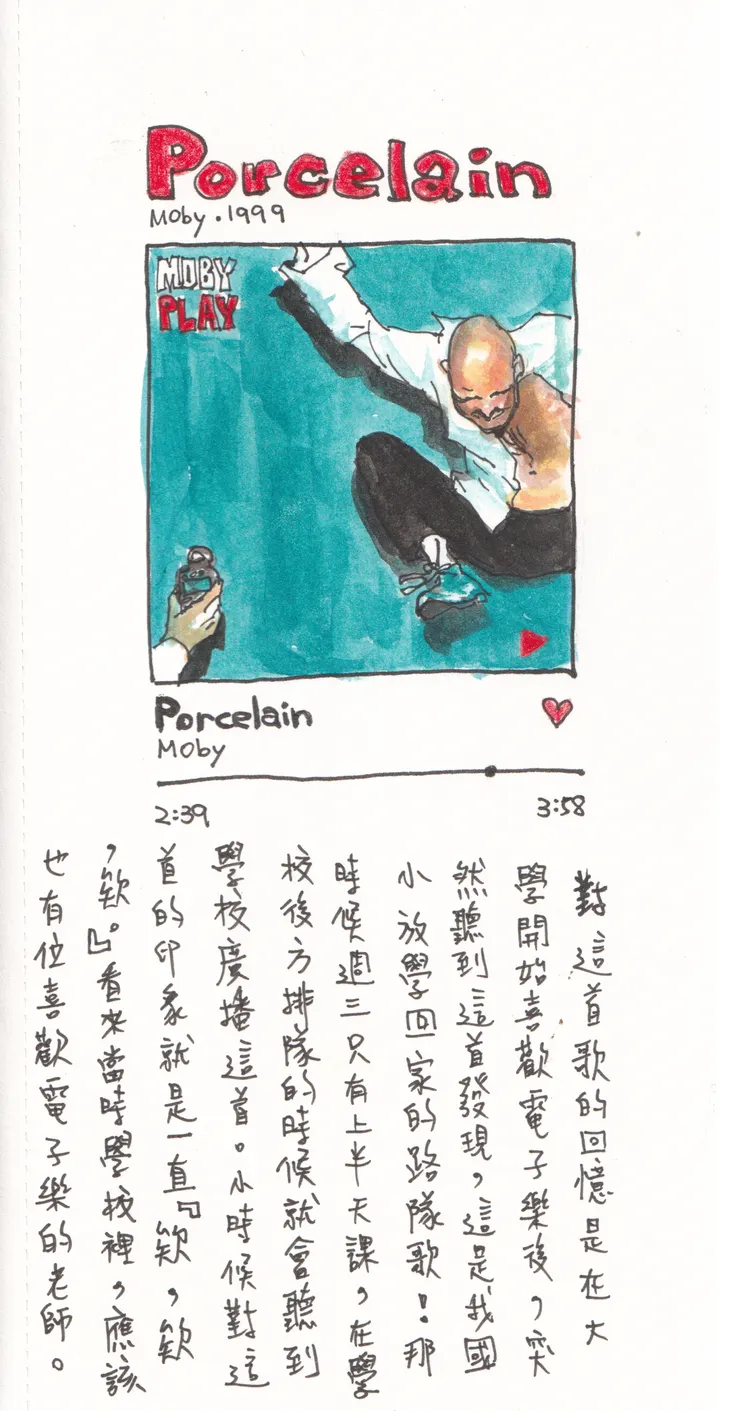 Porcelain
Moby.1999
MOBY
PLAY
Porcelain
Moby
2:39
3:58
對這首歌的回憶是在大
學開始喜歡電子樂後，突
然聽到這首發現，這是我國
小放學回家的路隊歌！那
時候週三只有上半天課，在學
校後方排隊的時候就會聽到
學校廣播這首。小時候對這
首的印象就是一直『欸，欸
，欸。』看來當時學校裡，應該
也有位喜歡電子樂的老師。